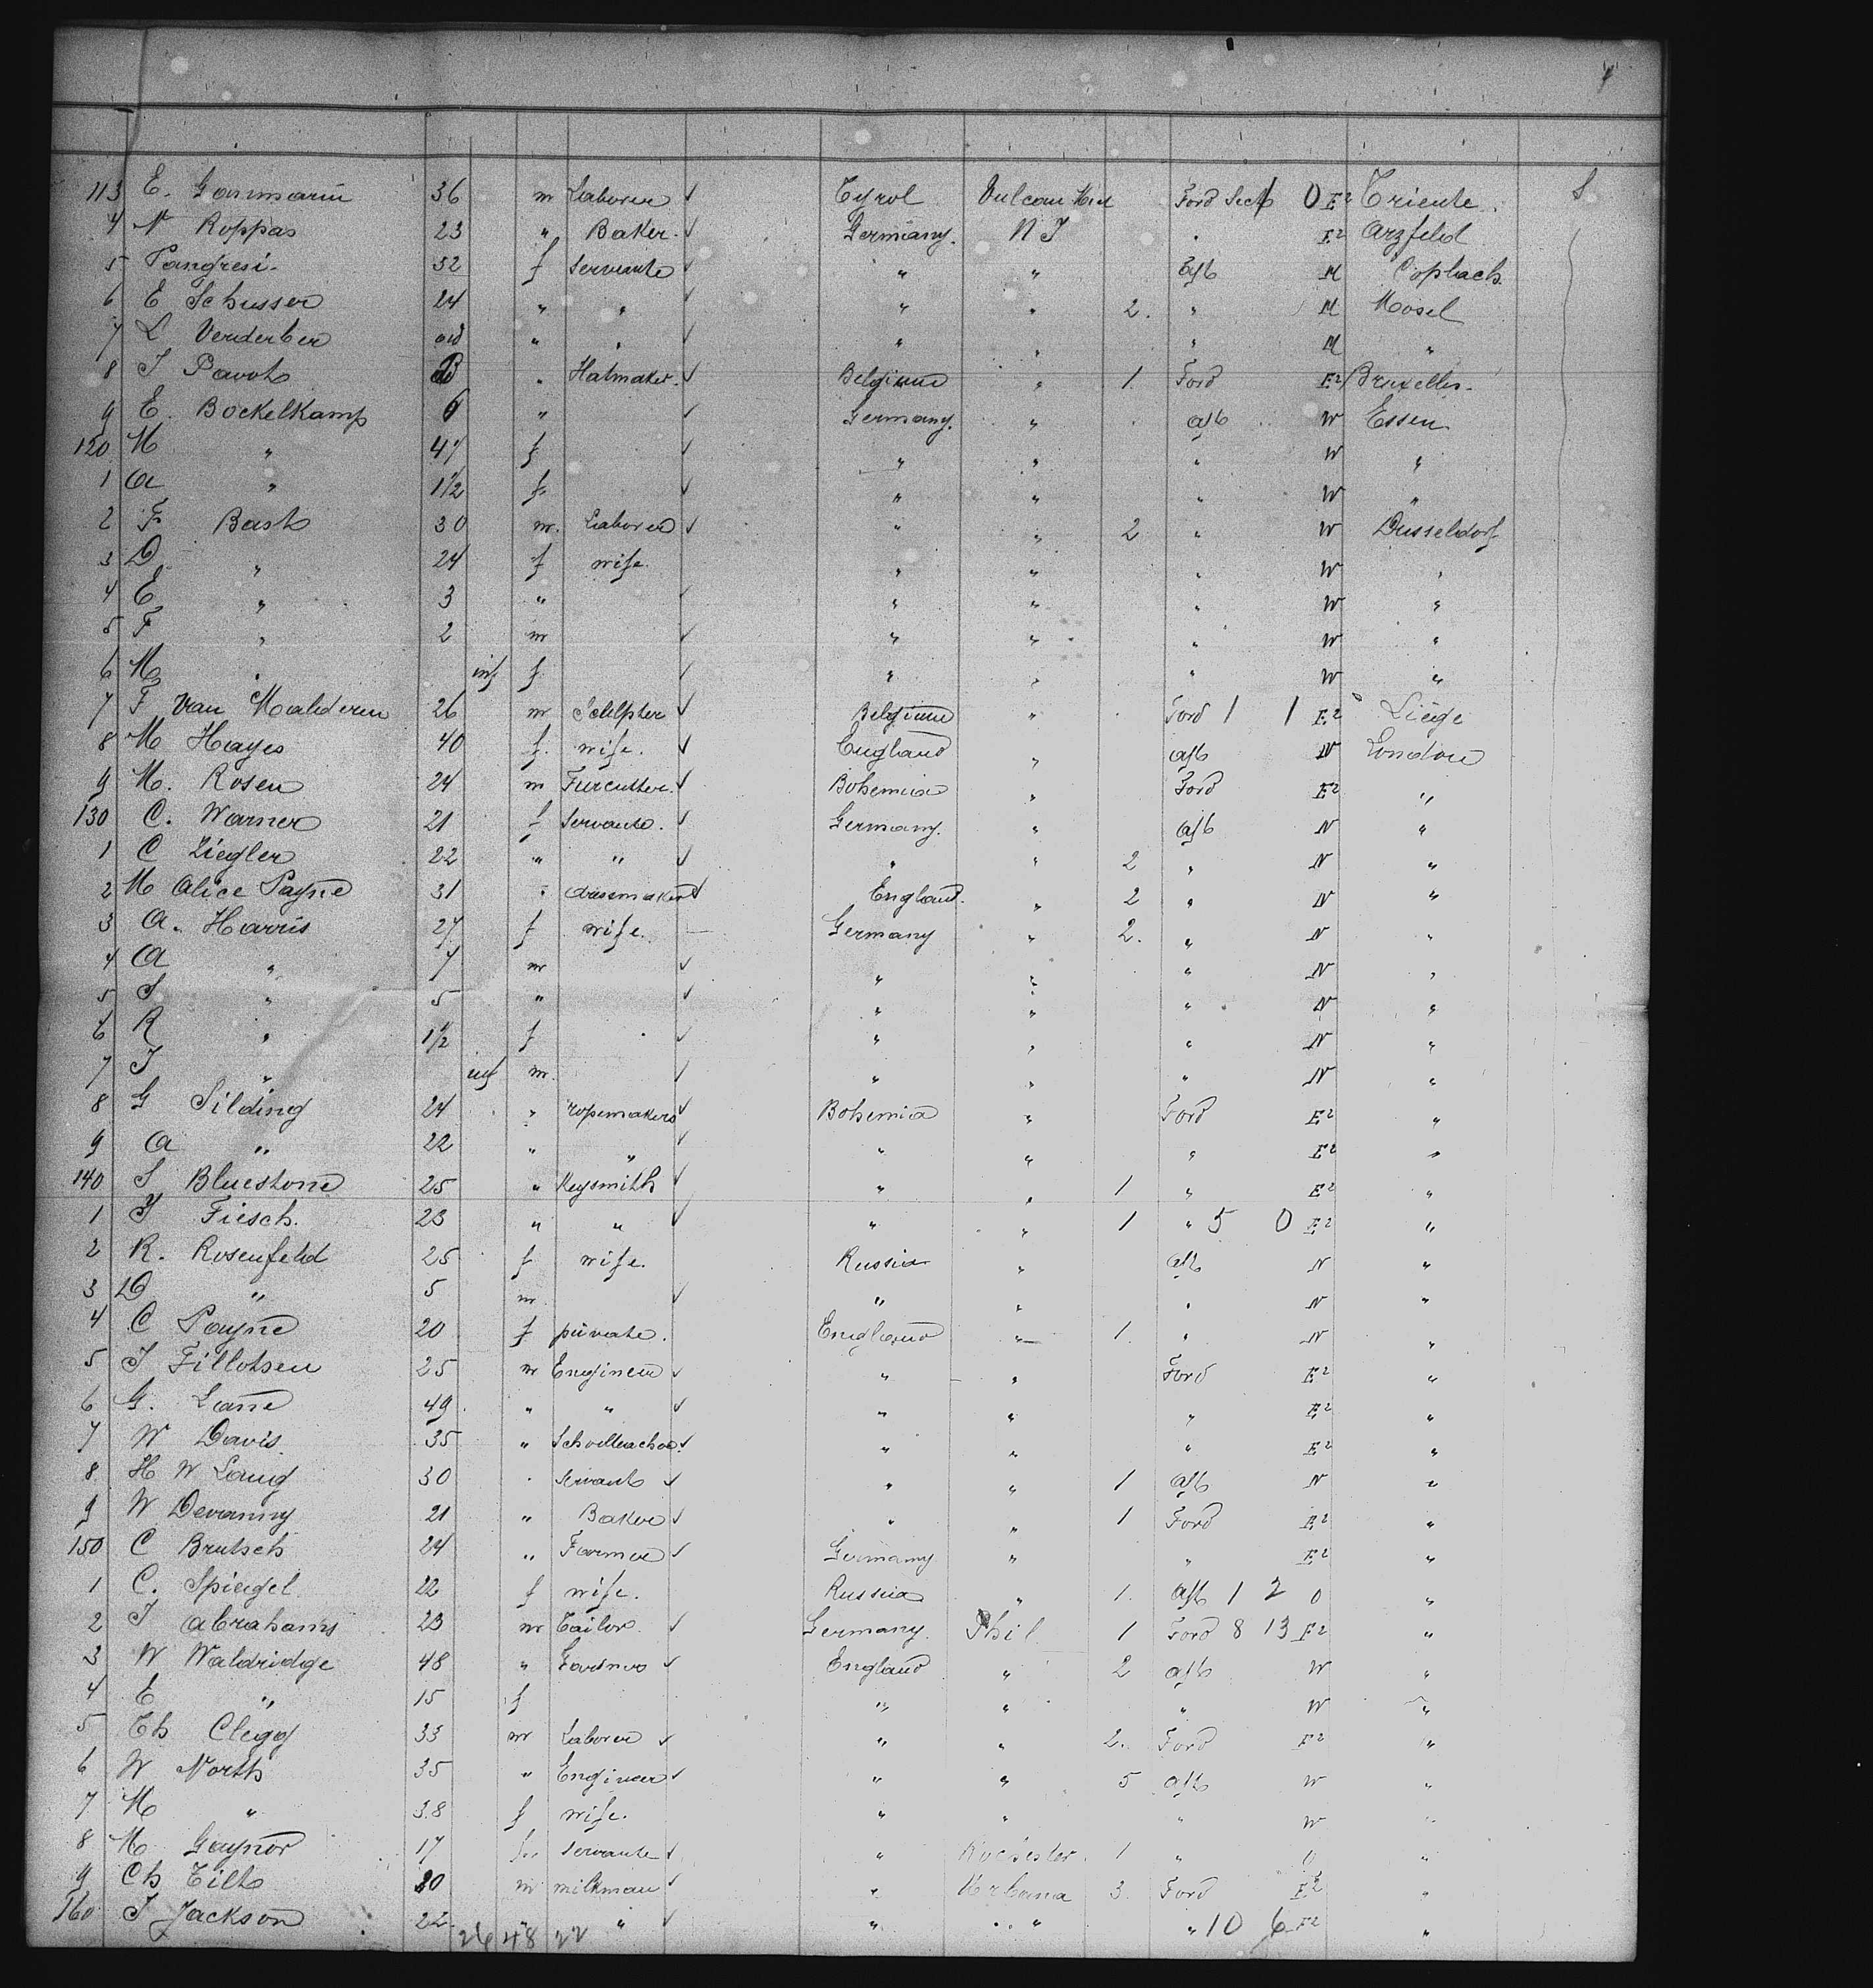 113 E. Ganmarin 36 m Laborer ✓ Tyrol Vulcan Ford Sect 0 E2 Triente S
4 N Roppas 23 " Baker ✓ Germany. N J " E2 Arzfeld
5 Pangresi. 32 f Servante ✓ " " aft M Copbach
6 E Schusser 24 " " ✓ " " 2. " M Mosel
7 L Verderber " " ✓ " " " M "
8 J Pavot " Hatmaker. ✓ Belgium " 1 Ford E2 Bruxelles.
9 E. Bockelkamp 6 " ✓ Germany. " aft W Essen
120 M " 4 f ✓ " " " W "
1 a " 1 1/2 f. ✓ " " " W "
2 F Bast 30 m. Laborer ✓ " " 2 " W Dusseldorf
3 D " 24 f wife. " " " W "
4 E " 3 " ✓ " " " W "
5 F " 2 m ✓ " " " W "
6 M " inf f ✓ " " " W "
7 F Van Malderen 26 m Sculpter ✓ Belgium " Ford 1 1 E2 Liege
8 M Hayes 40 f. wife. ✓ England " aft N London
9 M. Rosen 24 m Furcutter. ✓ Bohemia " Ford E2 "
130 C. Warner 21 f Servante. ✓ Germany. " aft N "
1 C Ziegler 22 " " ✓ " " 2 " N "
2 M Alice Payne 31 " dressmaker ✓ England. " 2 " N "
3 A. Harris 27 f wife. Germany " 2. " N "
4 A " 7 m ✓ " " " N "
5 S " 5 " ✓ " " " N "
6 R " 1 1/2 f ✓ " " " N "
7 J " inf m. ✓ " " " N "
8 G Silding 24 " ropemakers ✓ Bohemia " Ford E2 "
9 A " 22 " " ✓ " " " E2 "
140 S Bluestone 25 " Keysmith ✓ " " 1 " E2 "
1 J Fiesch. 23 " " ✓ " " 1 " 5 0 E2 "
2 R. Rosenfeld 25 f wife. Russia " aft N "
3 D " 5 m ✓ " " " N "
4 C Payne 20 f private. England " 1. " N "
5 J Tillotsen 25 m Engineer ✓ " " Ford E2 "
6 G. Lane 49 " " ✓ " " " E2 "
7 W Davis. 35 " Schoolteacher ✓ " " " E2 "
8 H W Laug 30 " Servant ✓ " " 1 aft N "
9 W Devanny 21 " Baker ✓ " " 1 Ford E2 "
150 C Brutsch 24 " Farmer ✓ Germany " " E2 "
1 C. Spiegel 22 f wife. Russia " 1. aft 1 2 0 "
2 J Abrahams 23 m Tailor. ✓ Germany. Phil 1 Ford 8 13 E2 "
3 W Waldridge 48 " ✓ England " 2 aft W "
4 E " 15 f " " " W "
5 Th Clegg 33 m Laborer ✓ " " 2. Ford E2 "
6 W North 35 " Engineer ✓ " " 5 aft W "
7 M " 38 f wife. " " " W "
8 M Gaynor 17 f.. Servante ✓ " Rochester. 1 " 0 "
9 Ch Tilt 20 m milkman ✓ " Urbana 3. Ford E2 "
160 J Jackson 22. " " ✓ " " " 10 6 E2 "
26 48 22